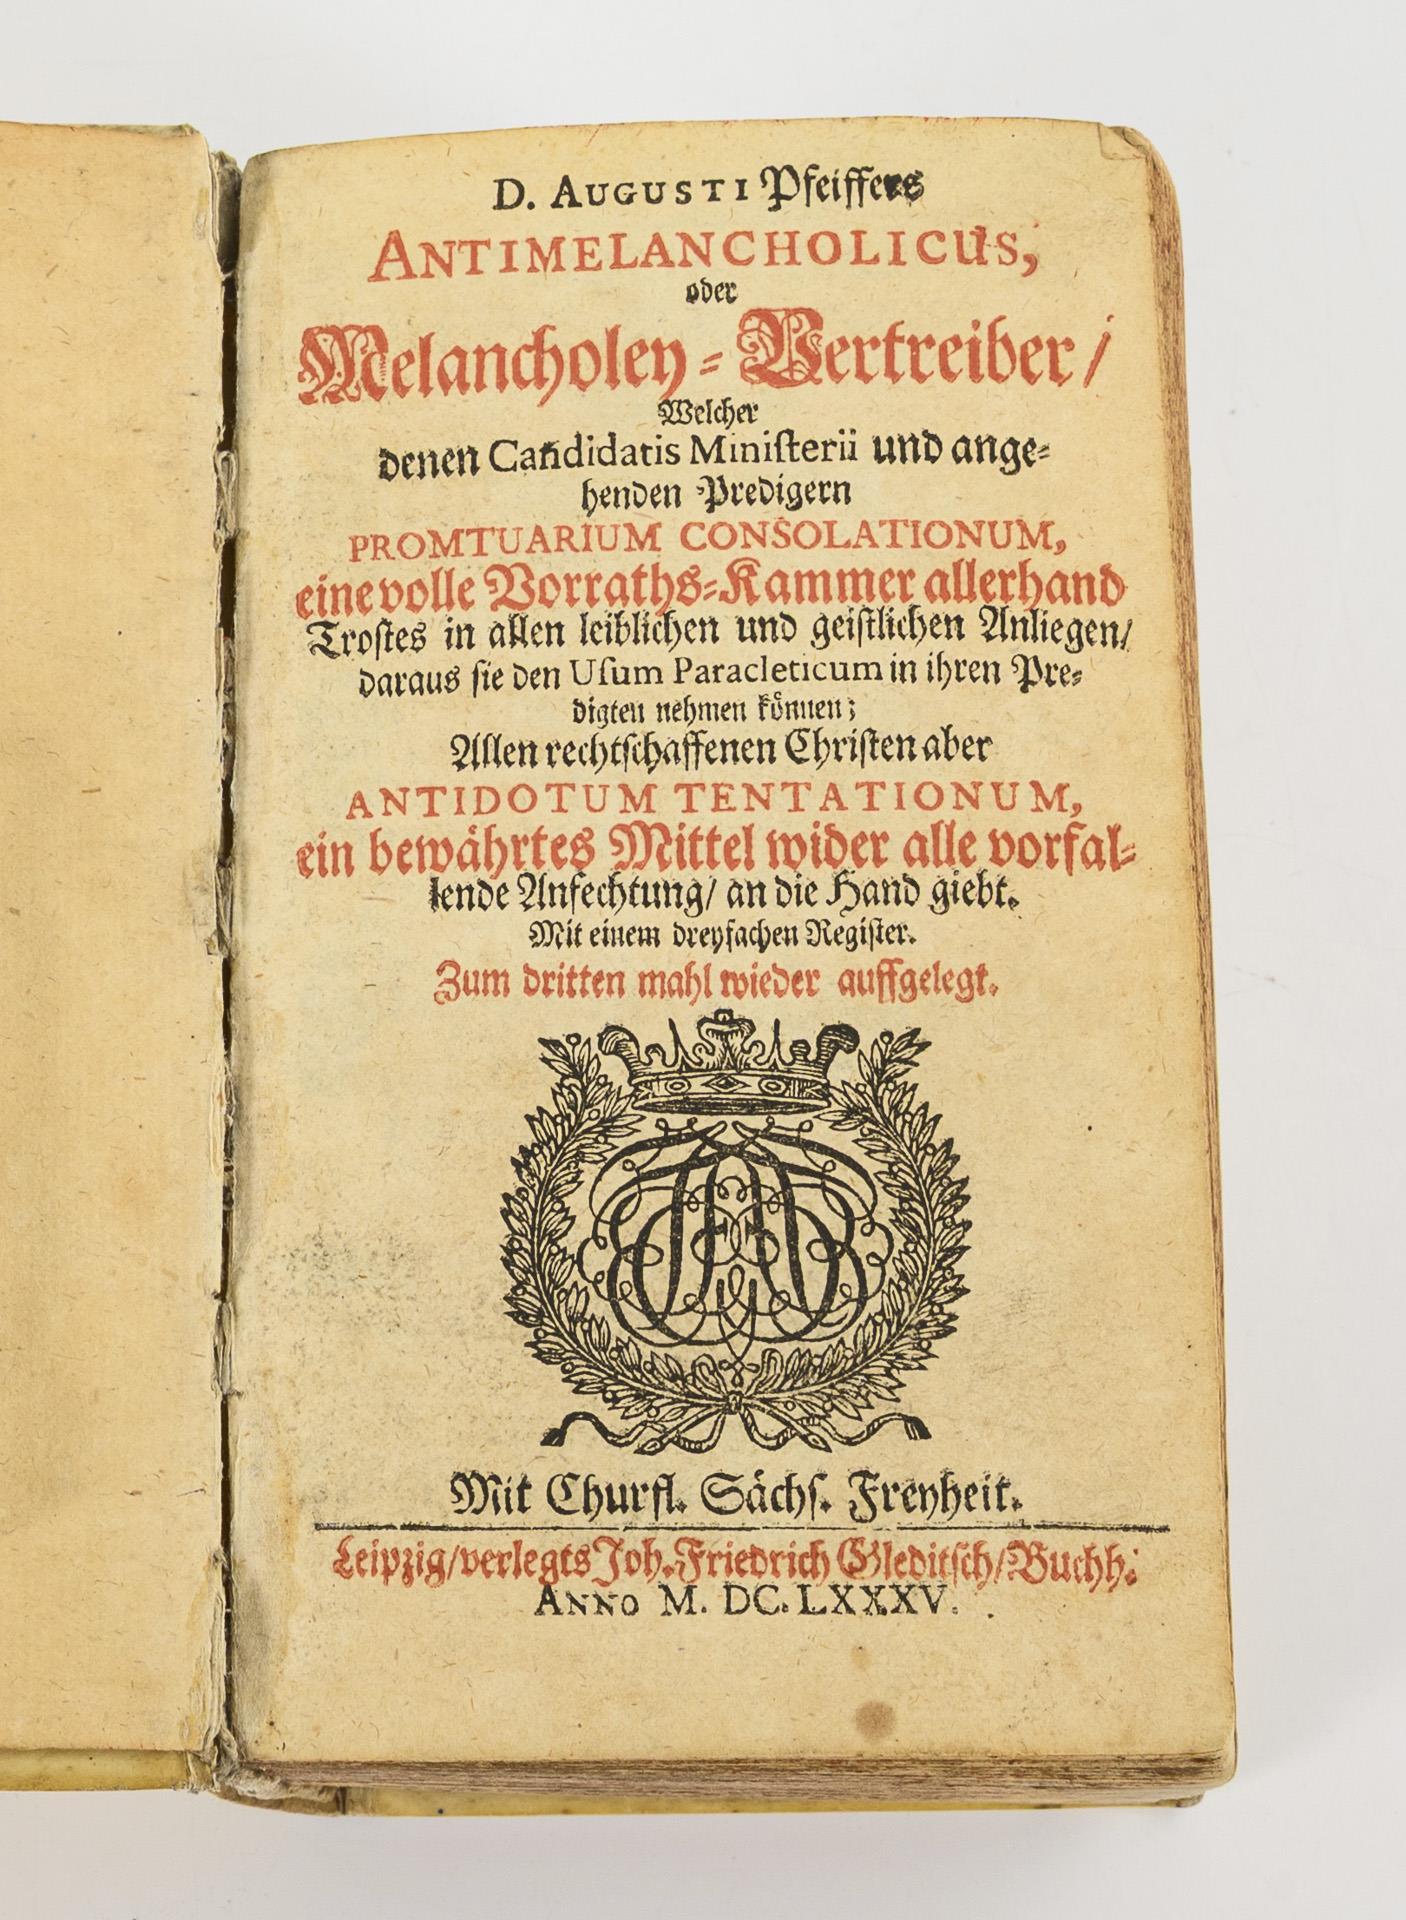 D. AUGUSTI Pfeiffers
ANTIMELANCHOLICUS,
oder
Melancholey-Vertreiber/
Welcher
denen Candidatis Miniſterii und ange-
henden Predigern
PROMTUARIUM CONSOLATIONUM,
eine volle Vorraths-Kammer allerhand
Troſtes in allen leiblichen und geiſtlichen Anliegen/
daraus ſie den Uſum Paracleticum in ihren Pre-
digten nehmen können;
Allen rechtſchaffenen Chriſten aber
ANTIDOTUM TENTATIONUM,
ein bewährtes Mittel wider alle vorfal-
lende Anfechtung/ an die Hand giebt.
Mit einem dreyfachen Regiſter.
Zum dritten mahl wieder auffgelegt.
Mit Churfl. Sächſ. Freyheit.
Leipzig/verlegts Joh. Friedrich Gleditſch/Buchh.
ANNO M. DC. LXXXV.